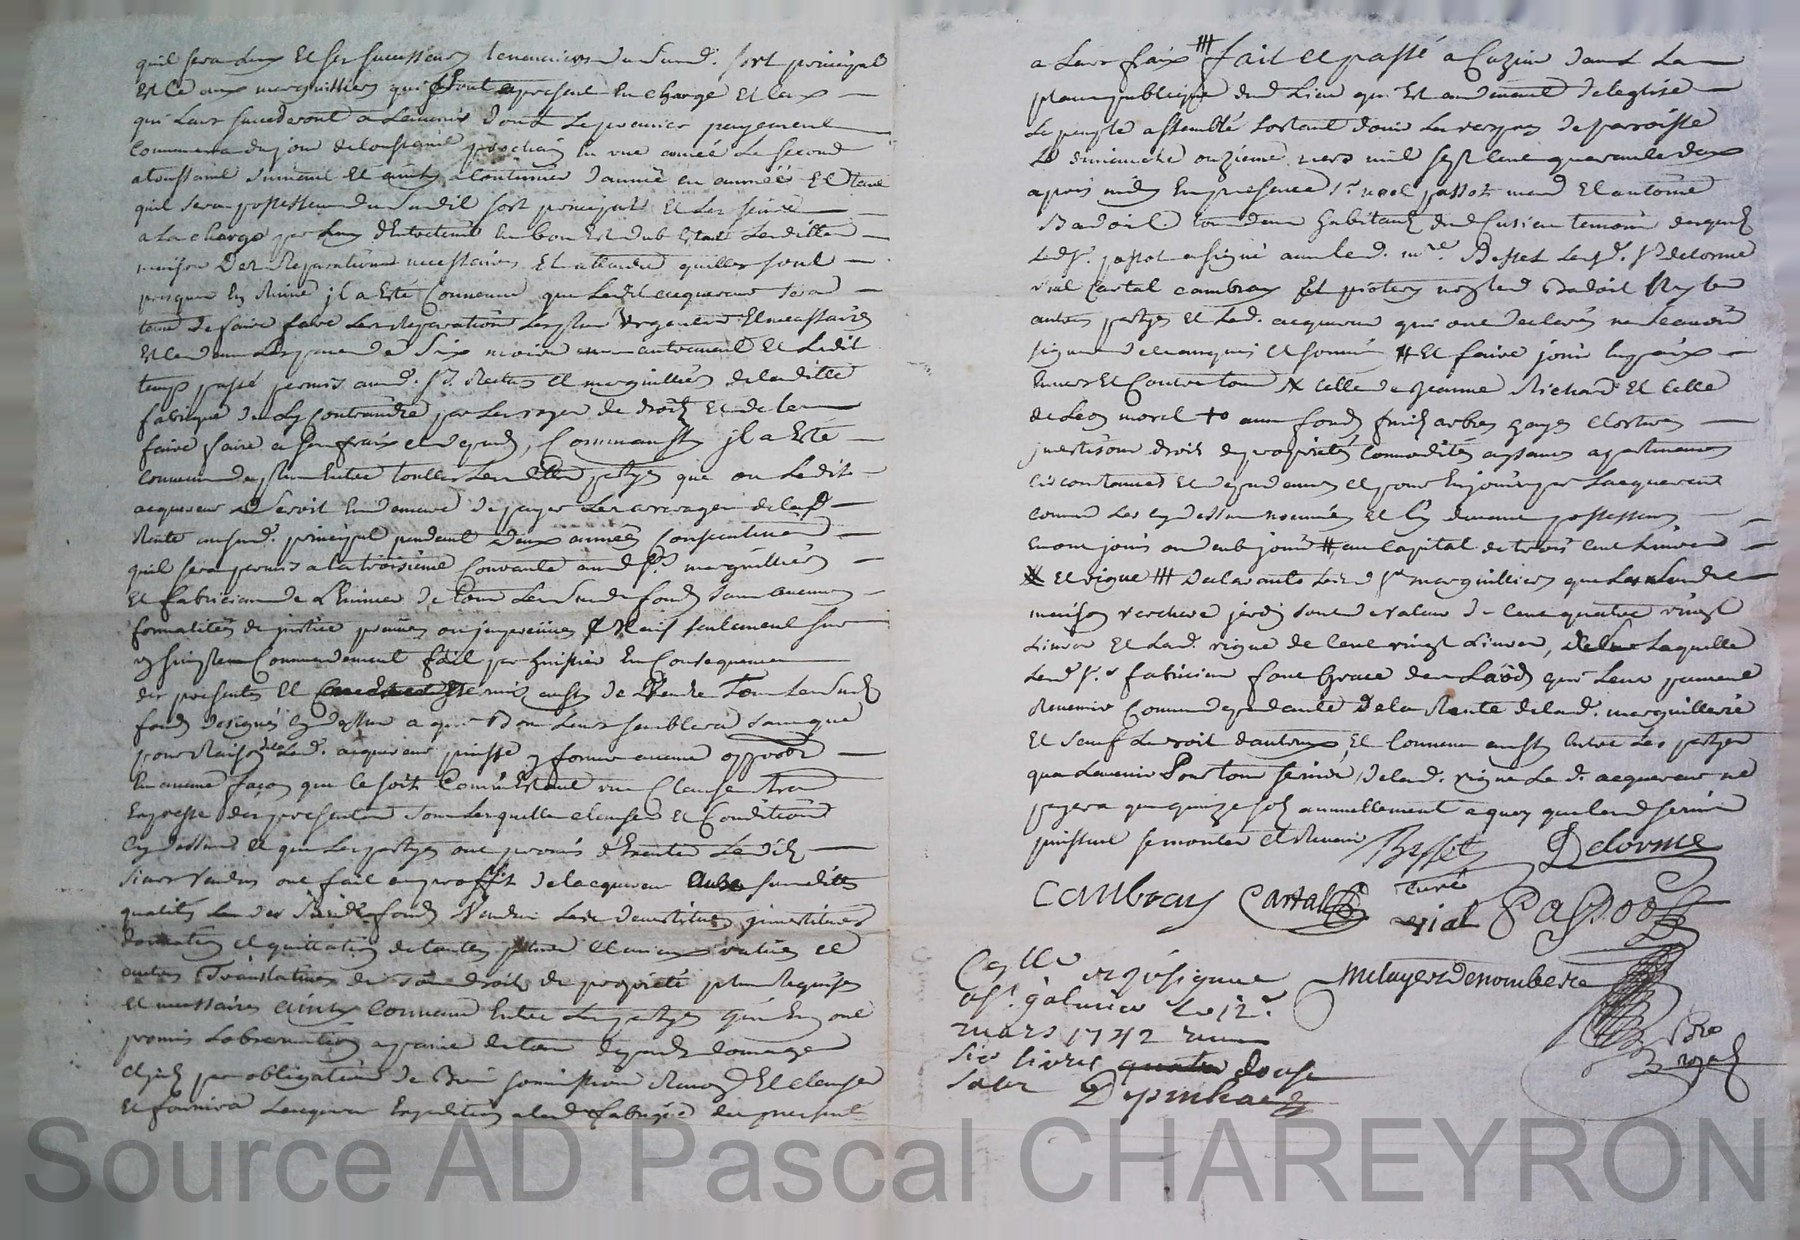 quil sera deux et ses successeurs tenanciers du susd. sort principal
et ce aux marguilliers qui sont apresent en charge et ceux
qui leur succederont a lavenir dont le premier payement
commencera du jour de toussaint prochain en une année le second
a toussaint suivant et ainsy a continuer dannée en années et tant
quil sera possesseur du susdit sort principal et les
a la charge par luy dentretenir en bon est dub estat lesdittes
maison des reparations necessaires et attendu quelles sont
presque en ruine il a esté convenu que ledit acquereur sera
tenu de faire faire les reparations les plus urgentes et necessaires
et ce dans lespace de six mois autrement et ledit
temps passé permis aud. sr. Recteur et marguilliers de laditte
fabrique de ly contraindre par les voyes de droit et de les
faire faire a ses frais et depends, comm'aussy il a esté
convenu de plus entre touttes lesdittes partyes que ou ledit
acquereur seroit en demeure de payer les arrerages de lad
Rente aususd. principal pendant deux années consecutives
quil sera permis a la troisieme courante aud sr. marguilliers
et fabricien de rentrer de tous les susd. fonds sans aucunes
formalités de justice mais seulement sur
un simple commandement fait par huissier en consequence
des presentes et permis aussy de vendre tous les susd
fonds designés cy dessus a qui bon leur semblera sans que
pour raison de ce led. acquereur puisse y former aucune oppoon
en aucune façon que ce soit comm'estant une clause
expresse des presentes sous lesquelles clauses et conditions
cy dessus et que les partyes ont promis d'executer lesdits
sieurs vendeurs ont fait au proffit de lacquereur susdittes
qualités les des susdit fonds vendus les devestitures investitures
donation et quittation de toutes plus et mieux values et
autres translations de tous droits de proprieté plus requises
et necessaires ainsy convenu entre les partyes qui en ont
promis lobservation a peine de tous depends domages
et par obligation de biens soumission Renon et clauses
et fournira lacquereur expedition a lad fabrique des presentes
a leurs fraix ⧻ fait et passé a Cuzieu dans la
place publique dud Lieu qui est audevant de leglise
le peuple assemblé sortant douir les vespres de parroisse
le dimanche onzieme mars mil sept cent quarante deux
apres midy en presence sr. noel passot mard et antoine
Badoil tous deux habitants dud Cusieu temoins desquels
led sr. passot a signé avec led. mre. Basset led. sr delorme
vial Cartal cambray et non led Badoil ny les
autres partyes et led. acquereur qui ont declarés ne scavoir
signer de ce enquis et sommés # et faire jouir
envers et contre tous X celle de Jeanne Richard et celle
de Leon morel to aux fonds fruits arbres hayes clostures
droits de proprietés commodités aysances apartenances
circonstances et dependances et pour en jouir par lacquereur
comme les cy dessus nommés et cy devant possesseurs
en ont jouis ou deub jouir # au capital de trois cent livres
X et vigne ⧻ declarants lesd srs marguilliers que les susdites
maison verchere jardin sont de valeur de cent quatre vingt
livres et lad. vigne de cent vingt livres, de laquelle
lesd srs. fabricien font grace des laods qui leur peuvent
Revenir comme dependante de la Rente de lad. marguillerie
et sauf le droit dautruy, et convenu aussy entre les partyes
que davenir pour tous servis de lad. vigne le d. acquereur ne
payera que quinze sols annuellement a quoy que led servis
puissent se monter et Revenir Basset Delorme
curé
Cambray Cartal vial Passot
Cellé
a st. galmier le 12e.
mars 1742 reçu
six livres quatre douse
sols Depinhac
Melayer Denombere
Nre
royal
Source AD Pascal CHAREYRON